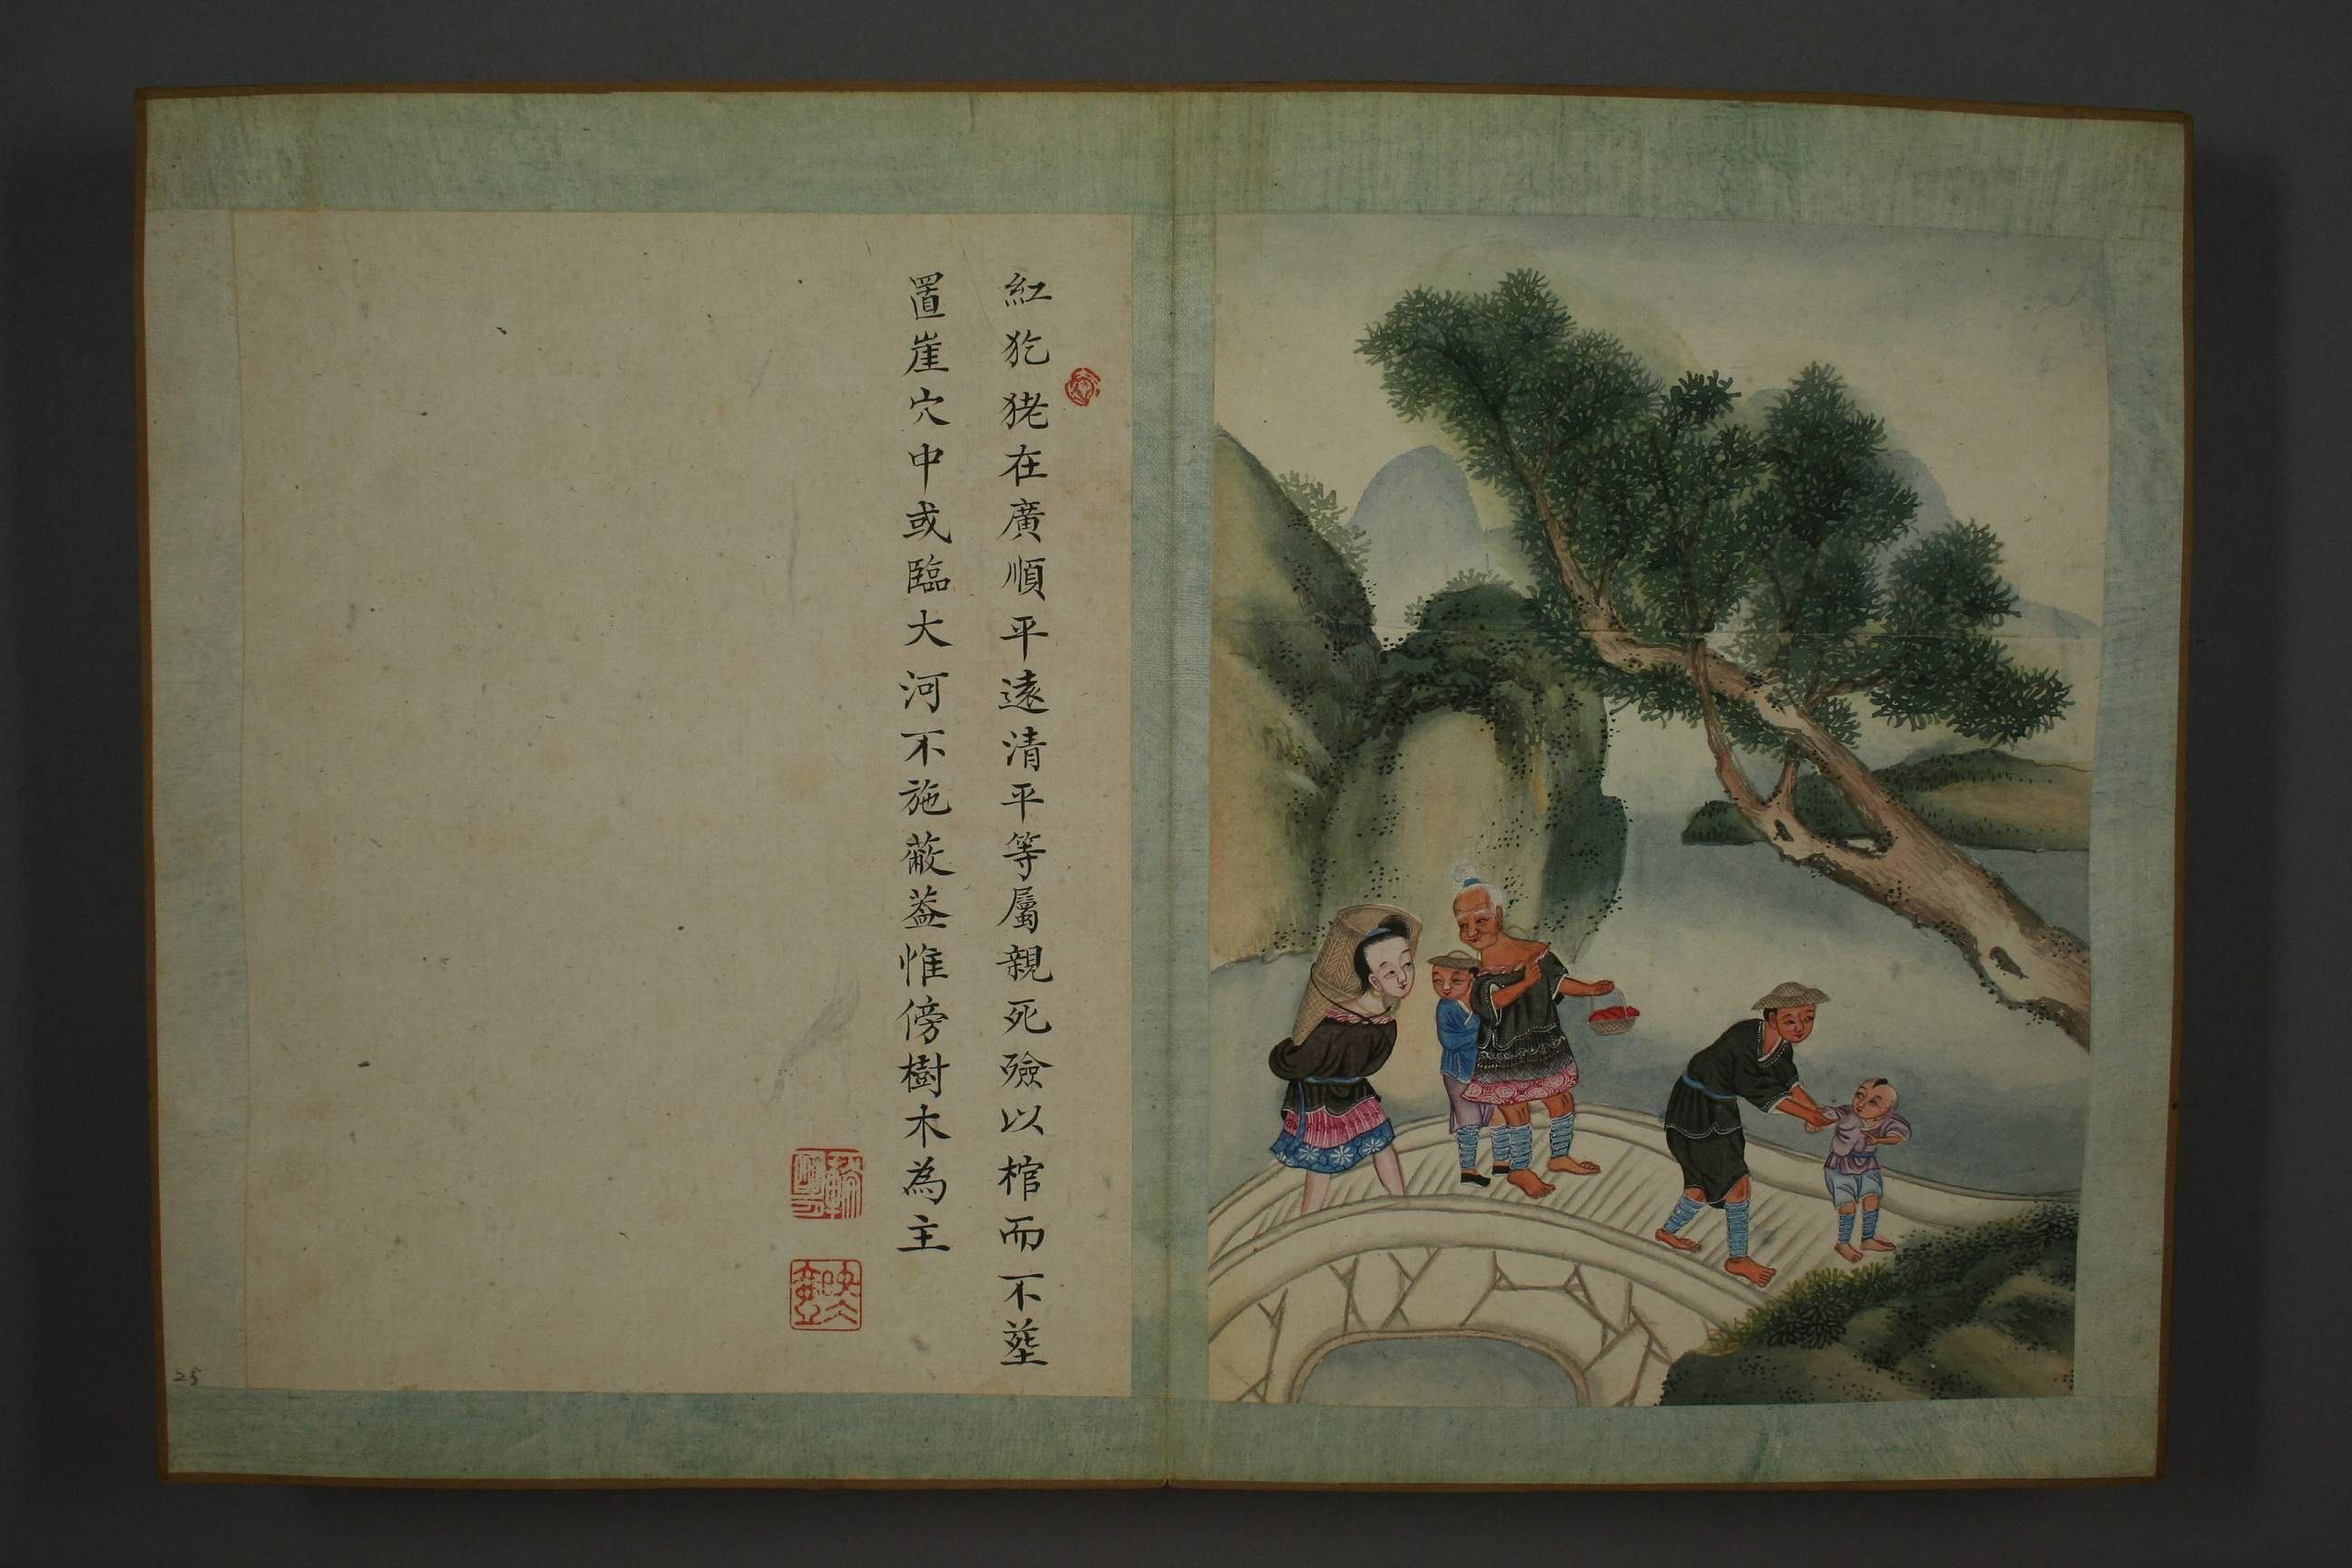 紅犵狫在廣順平遠清平等屬親死殮以棺而不塟
置崖穴中或臨大河不施蔽葢惟傍樹木為主
25